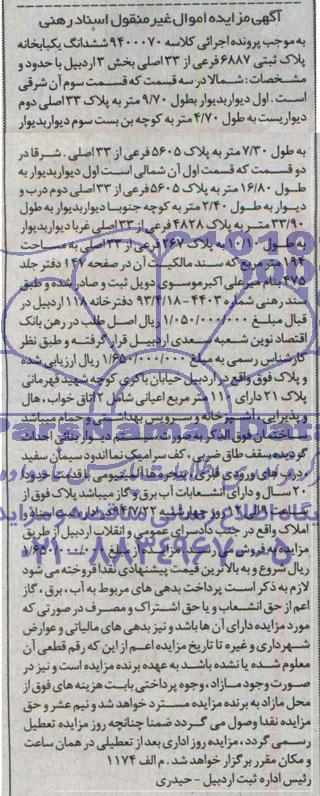 آگهی مزایده اموال غیر منقول اسناد رهنی
به موجب پرونده اجرائی کلاسه ۹۴۰۰۰۷۰ ششدانگ یکبابخانه
پلاک ثبتی ۶۸۸۷ فرعی از ۳۳ اصلی بخش ۳ اردبیل با حدود و
مشخصات: شمالا در سه قسمت که قسمت سوم آن شرقی
است. اول دیوار بدیوار بطول ۹/۷۰ متر به پلاک ۳۳ اصلی دوم
دیواریست به طول ۴/۷۰ متر به کوچه بن بست سوم دیوار بدیوار
به طول ۷/۳۰ متر به پلاک ۵۶۰۵ فرعی از ۳۳ اصلی. شرقا در
دو قسمت که قسمت اول آن شمالی است اول دیوار بدیوار به
طول ۱۶/۸۰ متر به پلاک ۵۶۰۵ فرعی از ۳۳ اصلی دوم درب و
دیوار به طول ۲/۴۰ متر به کوچه جنوبا دیوار بدیوار به طول
متر به پلاک ۴۸۲۸ فرعی از ۳۳ اصلی غربا دیوار بدیوار
به طول ۱۰/۱۰ به پلاک ۲۶۷ فرعی از ۳۳ اصلی به مساحت
۱۹۴ متر مربع که سند مالکیت آن در صفحه ۱۴۷ دفتر جلد
۴۷۵ بنام میر علی اکبر موسوی دویل ثبت و صادر شده و طبق
سند رهنی شماره ۴۴۰۳ - ۹۳/۴/۱۸ دفترخانه ۱۱۸ اردبیل در
قبال مبلغ ۱/۰۵۰/۰۰۰/۰۰۰ ریال اصل طلب در رهن بانک
اقتصاد نوین شعبه سعدی اردبیل قرار گرفته و طبق نظر
کارشناس رسمی به مبلغ ۱/۶۵۰/۰۰۰/۰۰۰ ریال ارزیابی شده
و پلاک فوق واقع در اردبیل خیابان باکری کوچه شهید قهرمانی
پلاک ۲۱ دارای ۱۱۰ متر مربع اعیانی شامل ۲ اتاق خواب، هال
و پذیرایی، آشپزخانه و سرویس بهداشتی و حمام میباشد
ساختمان فوق الذکر به صورت سیستم دیوار بنائی احداث
گردیده سقف طاق ضربی، کف سرامیک نما اندود سیمان سفید
، درب های ورودی فلزی، پنجره ها آلمینیومی با قدمت حدودا
۲۰ سال و دارای انشعابات آب برق و گاز میباشد پلاک فوق از
ساعت ۹ الی ۱۲ روز چهارشنبه ۹۴/۷/۲۲ در اداره ثبت اسناد و
املاک واقع در جنب دادسرای عمومی و انقلاب اردبیل از طریق
مزایده به فروش می رسد. مزایده از مبلغ ۱/۶۵۰/۰۰۰/۰۰۰
ریال شروع و به بالاترین قیمت پیشنهادی نقدا فروخته می شود
لازم به ذکر است پرداخت بدهی های مربوط به آب، برق، گاز
اعم از حق انشعاب و یا حق اشتراک و مصرف در صورتی که
مورد مزایده دارای آن ها باشد و نیز بدهی های مالیاتی و عوارض
شهرداری و غیره تا تاریخ مزایده اعم از این که رقم قطعی آن
معلوم شده یا نشده باشد به عهده برنده مزایده است و نیز در
صورت وجود مازاد، وجوه پرداختی بابت هزینه های فوق از
محل مازاد به برنده مزایده مسترد خواهد شد و نیم عشر و حق
مزایده نقدا وصول می گردد ضمنا چنانچه روز مزایده تعطیل
رسمی گردد، مزایده روز اداری بعد از تعطیلی در همان ساعت
و مکان مقرر برگزار خواهد شد. م الف ۱۱۷۴
رئیس اداره ثبت اردبیل - حیدری
ParsNamadData
۰۲۱-۸۸۳۴۹۶۷۰-۵